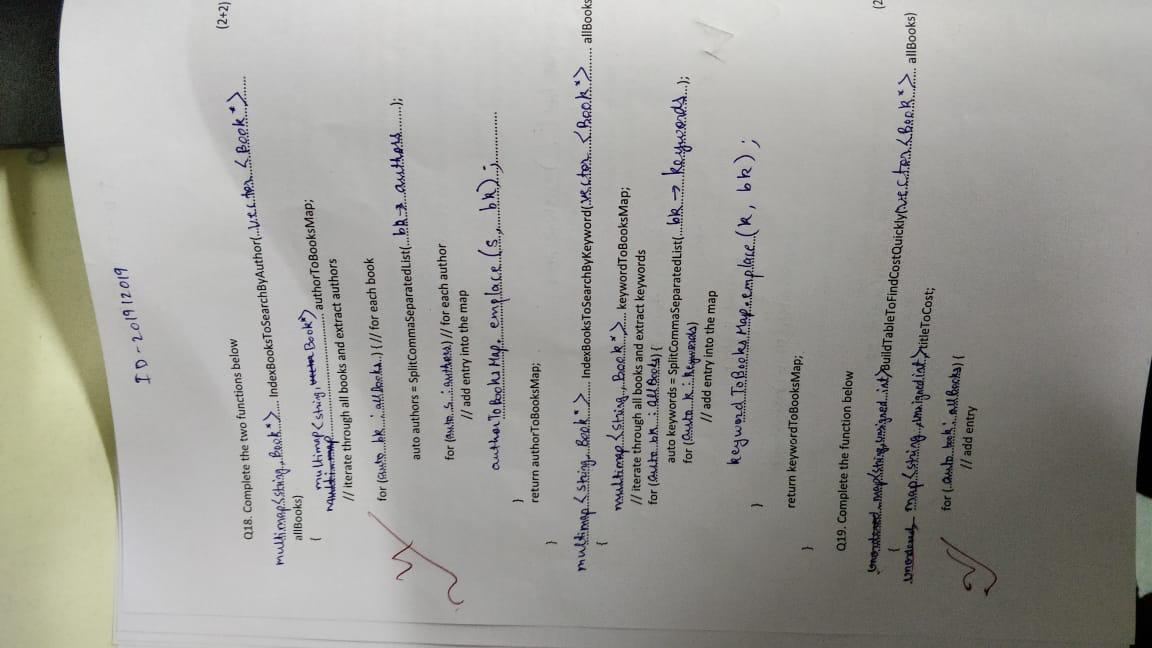 ID-201912019
Q18. Complete the two functions below
(2+2)
multimap<string, Book*>.... IndexBooksToSearchByAuthor(...vector <Book*>......
allBooks)
{ multimap<string, Book*>
............................. authorToBooksMap;
// iterate through all books and extract authors
for (auto bk : allBooks..) { // for each book
auto authors = SplitCommaSeparatedList(...bk→ authors.......);
for (auto s : authors) // for each author
// add entry into the map
authorToBooksMap. emplace (s, bk);.............
}
return authorToBooksMap;
}
multimap <string, Book*>.... IndexBooksToSearchByKeyword(vector <Book*>...... allBooks
{
multimap <string, Book*>... keywordToBooksMap;
// iterate through all books and extract keywords
for (auto bk : allBooks) {
auto keywords = SplitCommaSeparatedList(...bk → keywords...);
for (auto k : keywords)
// add entry into the map
keywordToBooksMap.emplace (k, bk);
}
return keywordToBooksMap;
}
Q19. Complete the function below
(2
unordered_map<string, unsigned int>BuildTableToFindCostQuickly(vector<Book*>.... allBooks)
{
unordered map<string, unsigned int>titleToCost;
for (.auto book : allBooks) {
// add entry